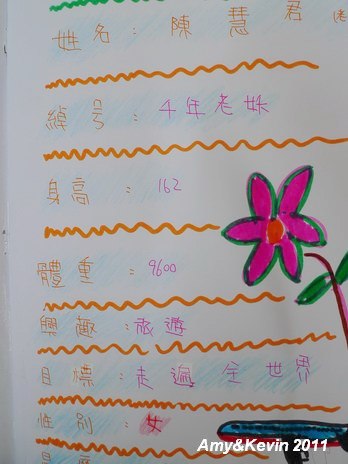 姓名：陳慧君
綽号：4年老妹
身高：162
體重：9600
興趣：旅遊
目標：走遍全世界
性別：女
Amy&Kevin 2011